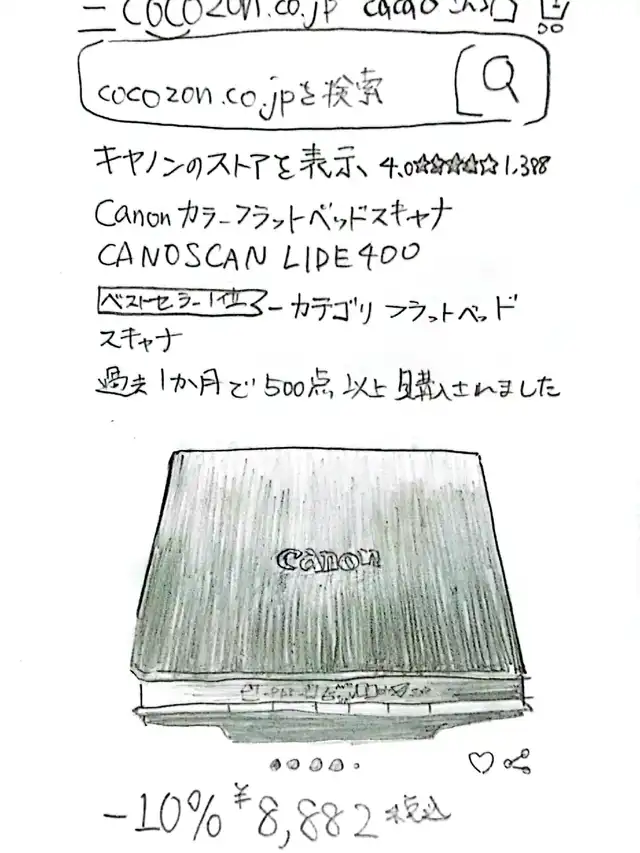 cocozon.co.jp cacao
cocozon.co.jpを検索
キヤノンのストアを表示、4.0☆☆☆☆☆1,398
Canonカラーフラットベッドスキャナ
CANOSCAN LIDE400
ベストセラー1位 - カテゴリ フラットベッド
スキャナ
過去1か月で500点以上購入されました
Canon
-10% ¥8,882 税込